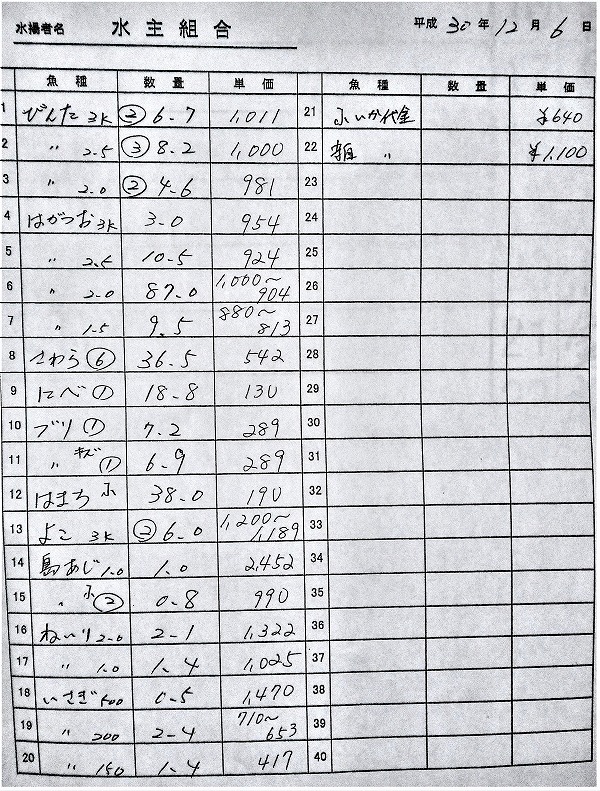 水揚者名 水主組合 平成 30 年 12 月 6 日
魚種 数量 単価 魚種 数量 単価
1 びんた 3K ② 6-7 1,011 21 ふいか代金 ¥640
2 〃 2-5 ③ 8-2 1,000 22 〃 ¥1,100
3 〃 2-0 ② 4-6 981 23
4 はがつお 3K 3-0 954 24
5 〃 2-5 10-5 924 25
6 〃 2-0 87-0 1,000〜904 26
7 〃 1-5 9.5 880〜813 27
8 さわら ⑥ 36-5 542 28
9 にべ ① 18-8 130 29
10 ブリ ① 7-2 289 30
11 〃 キズ ① 6-9 289 31
12 はまち ふ 38-0 190 32
13 よこ 3K ② 6-0 1,200〜1,189 33
14 島あじ 1.0 1.0 2,452 34
15 〃 ふ ② 0-8 990 35
16 ねいり 2-0 2-1 1,322 36
17 〃 1.0 1-4 1,025 37
18 いさぎ 500 0-5 1,470 38
19 〃 200 2-4 710〜653 39
20 〃 150 1-4 417 40